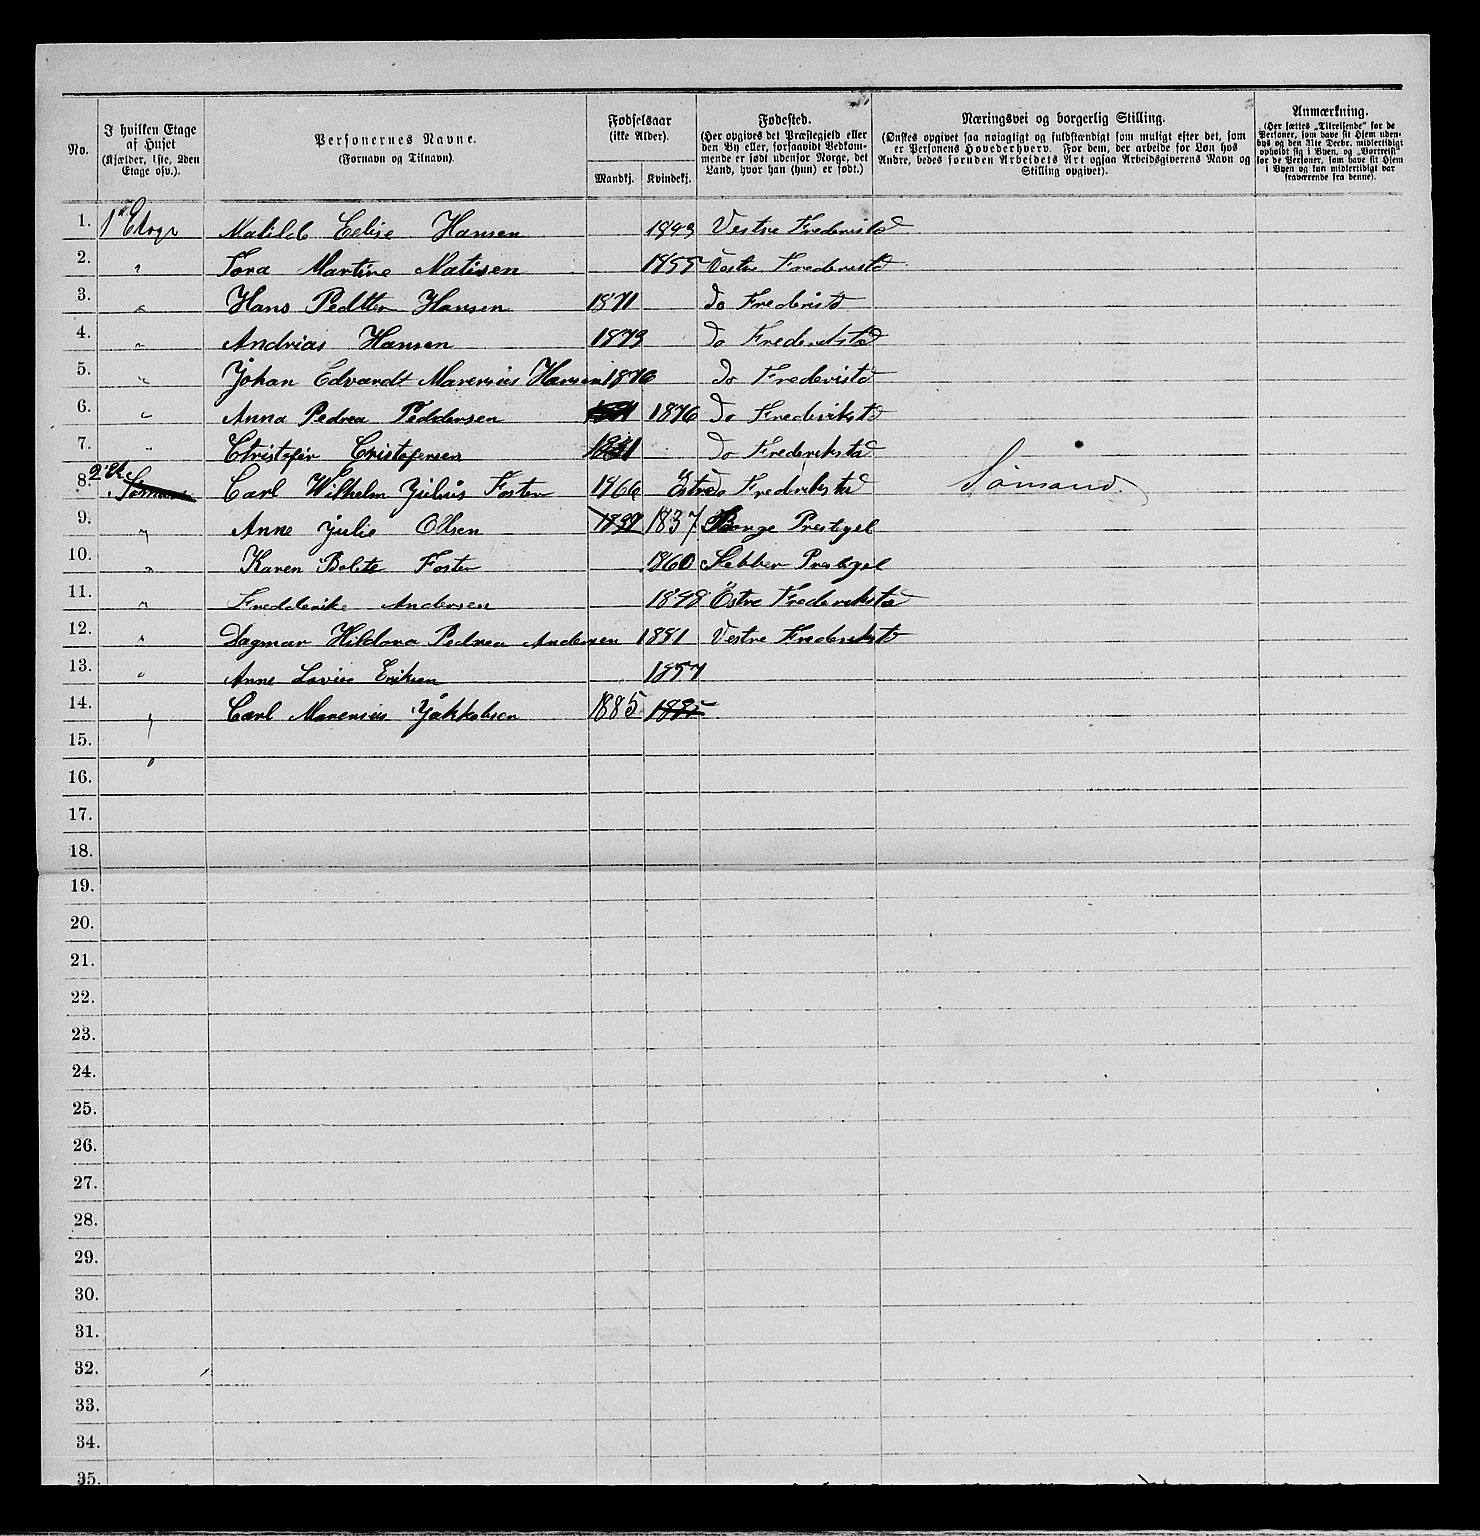 No. I hvilken Etage af Huset (Kjælder, 1ste, 2den Etage osv.). Personernes Navne. (Fornavn og Tilnavn). Fødselsaar (ikke Alder). Mandkj. Kvindekj. Fødested. (Her opgives det Præstegjeld eller den By eller, forsaavidt Vedkommende er født udenfor Norge, det Land, hvor han (hun) er født.) Næringsvei og borgerlig Stilling. (Ønskes opgivet saa nøiagtigt og fuldstændigt som muligt efter det, som er Personens Hovederhverv. For dem, der arbeide for Løn hos Andre, bedes foruden Arbeidets Art ogsaa Arbeidsgiverens Navn og Stilling opgivet). Anmærkning. (Her sættes „Tilreisende“ for de Personer, som have sit Hjem udenbys og den 31te Decbr. midlertidigt opholdt sig i Byen, og „Bortreist“ for de Personer, som have sit Hjem i Byen og kun midlertidigt var fraværende fra denne).
1. 1ª Etage Matilde Hansen 1843 Vestre Frederiksta
2. " Tora Martine Matisen 1855 Vestre Frederikstd
3. " Hans Pedtter Hansen 1871 do Frederistd
4. " Andrias Hansen 1873 do Frederiksta
5. " Johan Edvardt Marensius Hansen 1876 do Frederista
6. " Anna Pedrea Peddersen 1876 do Frederikstd
7. " Christofer Cristofersen do Frederiksta
8. 2 Et Carl Wilhelm Julius Foster 1866 Östre do Frederiksta Sømand.
9. " Anne Julie Olsen 1837 1837 Prestegel
10. " Karen Bolete Foster 1860 Prestegel
11. " Fredderike Andersen 1848 Östre Frederiksta
12. " Dagmar Hildora Pedrea Andersen 1881 Vestre Frederikstd
13. " Anne Lovise Eriksen 1857
14. " Carl Marensius Jakkobsen 1885 1885
15. "
16.
17.
18.
19.
20.
21.
22.
23.
24.
25.
26.
27.
28.
29.
30.
31.
32.
33.
34.
35.